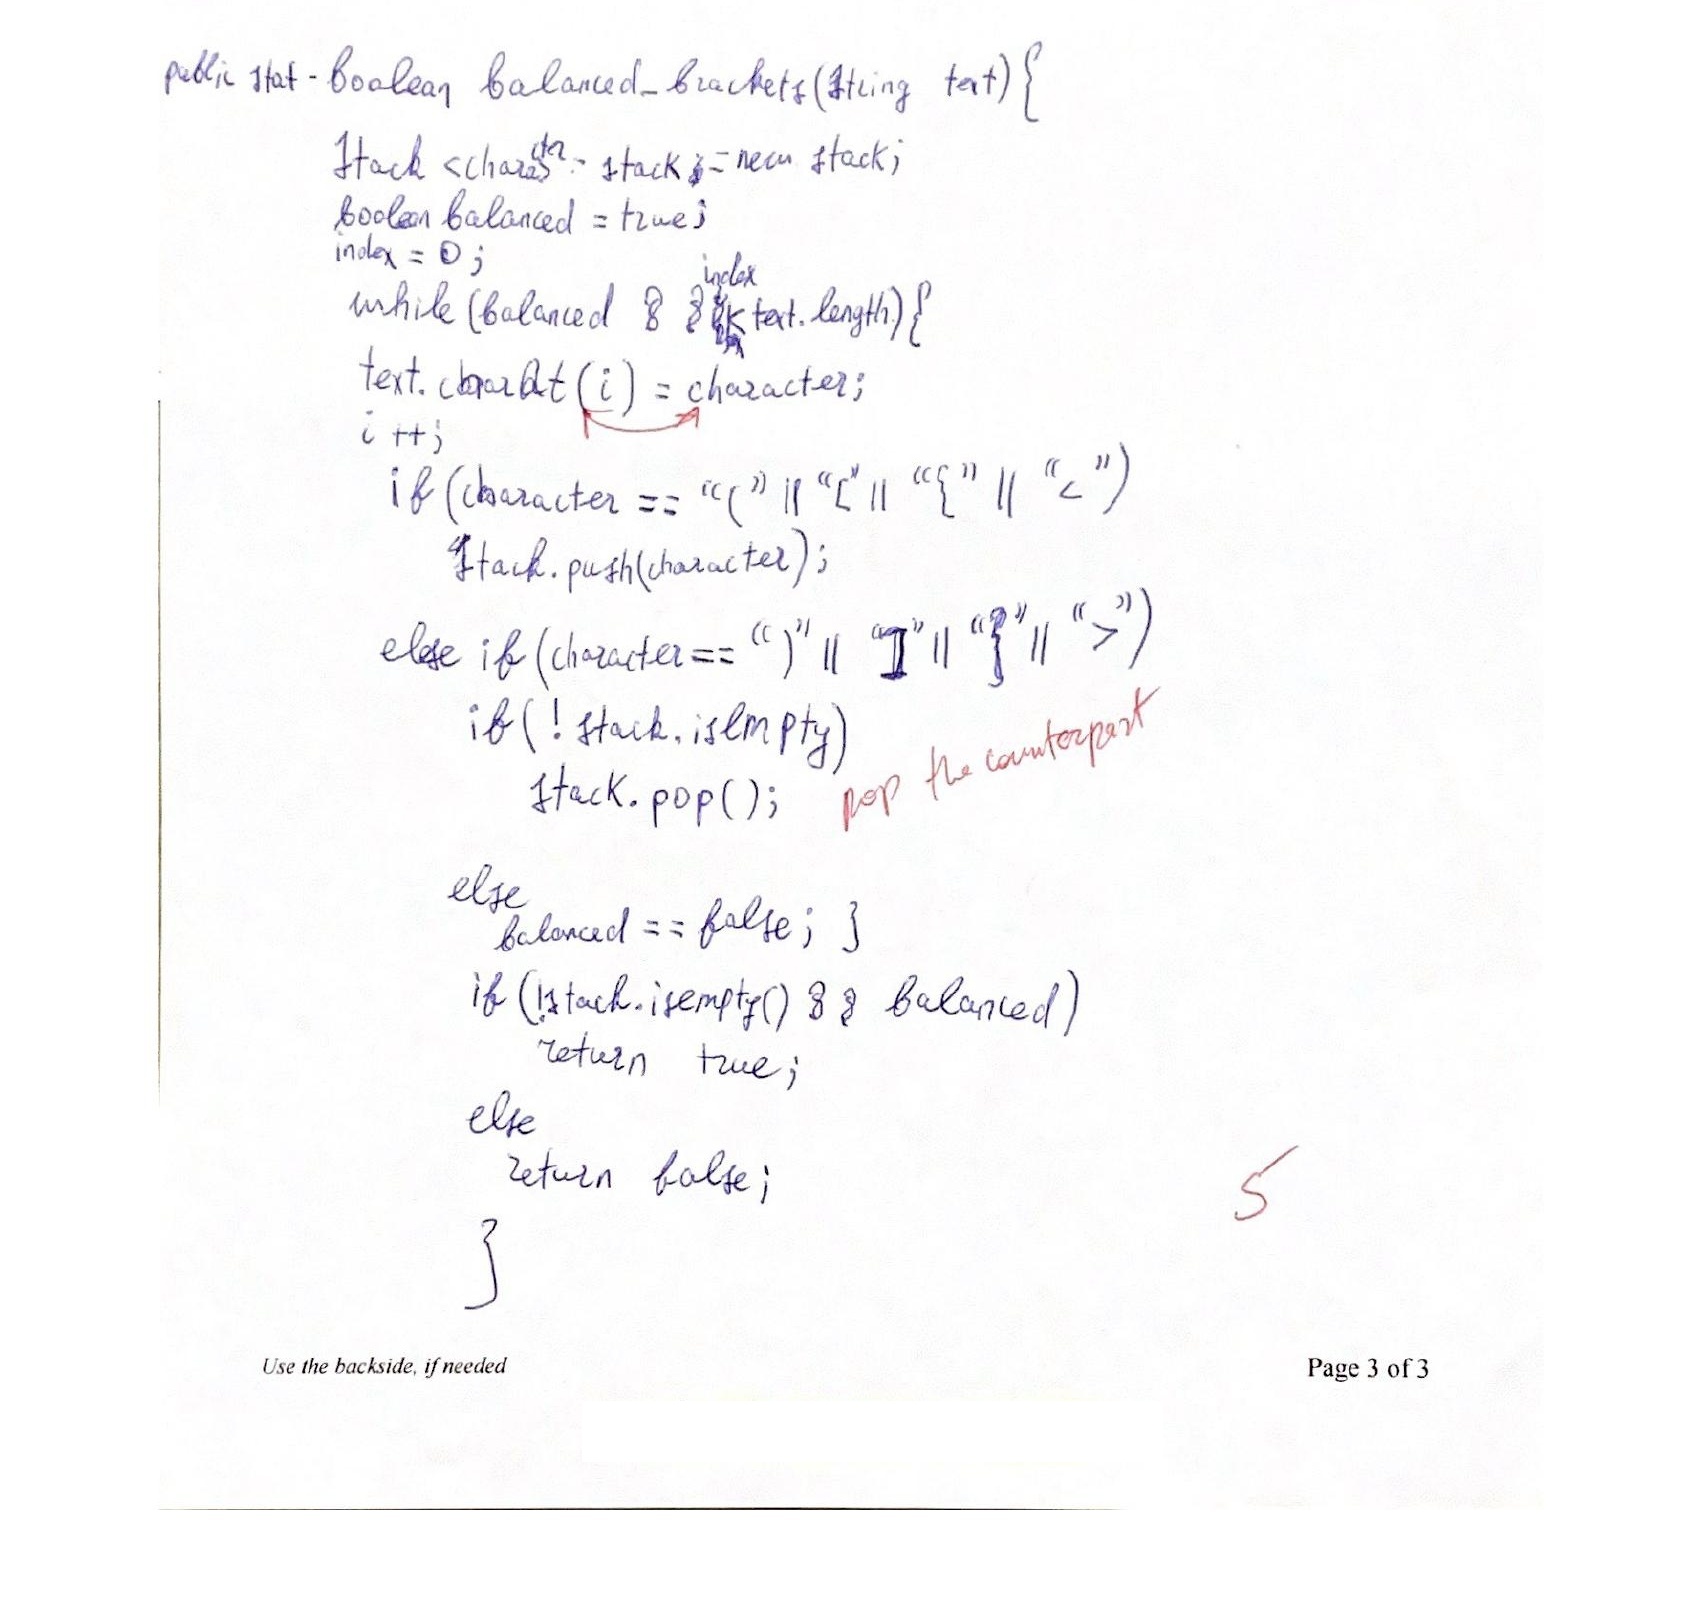 public stat - boolean balanced_brackets(String text){
Stack <character> stack = new stack;
boolean balanced = true;
index = 0;
index
while (balanced && < text.length){
text.charAt(i) = character;
i++;
if (character == "(" || "[" || "{" || "<")
stack.push(character);
else if (character == ")" || "]" || "}" || ">")
if(! stack.isEmpty)
stack.pop(); pop the counterpart
else
balanced == false; }
if (!stack.isempty() && balanced)
return true;
else
return false;
}
5
Use the backside, if needed Page 3 of 3